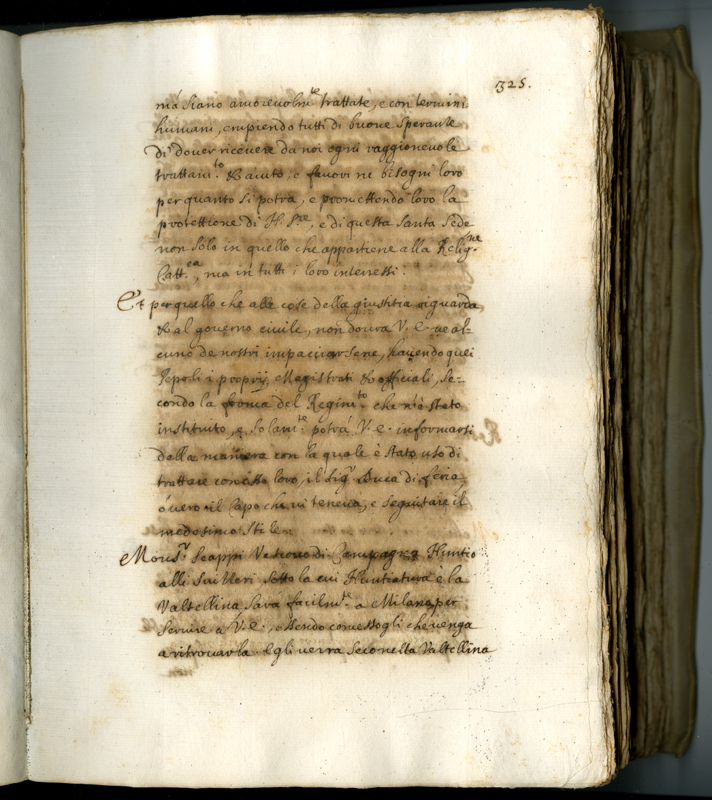 325.
mà siano amorevolm.te trattate, e con termini
humani, empiendo tutti di buone speranze
di dover ricevere da noi ogni raggionevole
trattam.to & aiuto, e favori ne bisogni loro
per quanto si potrà, e promettendo loro la
protettione di N. S.re, e di questa Santa Sede
non solo in quello che appartiene alla Relig.ne
Catt.ca, ma in tutti i loro interessi.
Et per quello che alle cose della giustitia riguarda,
& al governo civile, non dovrà V. E. ne al=
cuno de nostri impacciarsene, havendo quei
Popoli i proprij Magistrati & officiali, se=
condo la forma del Regim.to che n'è stato
instituito, e solam.te potrà V. E. informarsi
della maniera con la quale è stato uso di
trattare con esso loro, il Sig.r Duca di Feria
óvero il Capo che vi teneva, e seguitare il
medesimo stile.
Mons.r Scappi Vescovo di Campagna Nuntio
alli Suizzeri sotto la cui Nuntiatura è la
Valtellina, sarà facilm.te a Milano per
servire a V. E., essendo comessogli che venga
a ritrovarla. Egli verrà seco nella Valtellina